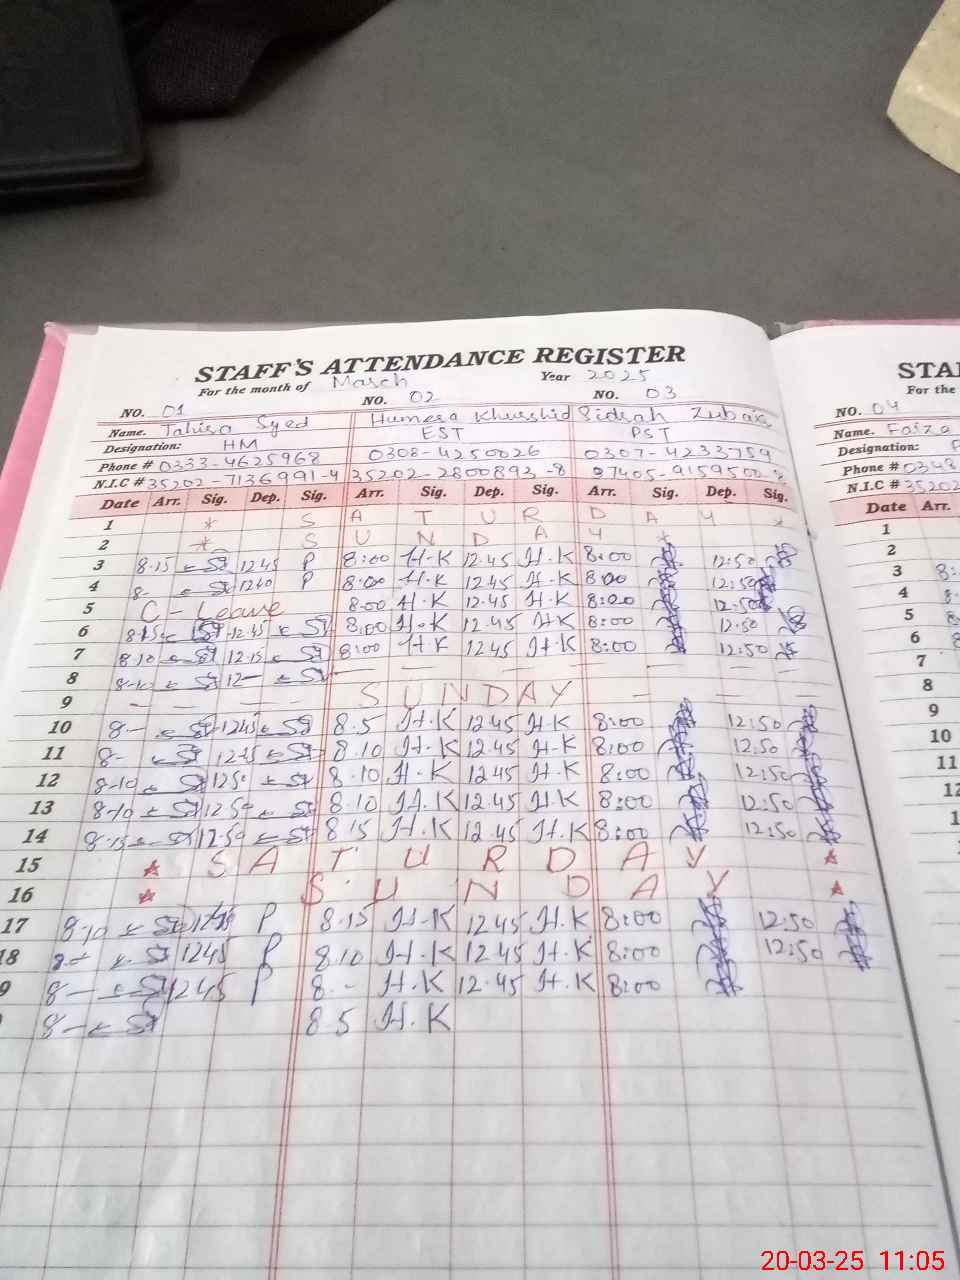 STAFF'S ATTENDANCE REGISTER
For the month of March Year 2025
NO. 01 NO. 02 NO. 03
Name. Tahira Syed Humera Khurshid Sidrah Zubair
Designation: HM EST PST
Phone # 0333-4625968 0308-4250026 0307-4233759
N.I.C # 35202-7136991-4 35202-2800893-8 37405-9159502-8
Date Arr. Sig. Dep. Sig. Arr. Sig. Dep. Sig. Arr. Sig. Dep. Sig.
1 * S A T U R D A Y *
2 * S U N D A Y *
3 8-15 1245 P 8:00 H-K 12.45 H.K 8:00 12:50
4 8- 1240 P 8:00 H-K 12.45 H-K 8:00 12:50
5 C-Leave 8.00 H.K 12.45 H.K 8:00 12:50
6 8.15 12.45 8:00 H.K 12.45 H.K 8:00 12:50
7 8.10 12.15 8:00 H K 12 45 H.K 8:00 12:50
8 8-10 12-
9 - - - SUNDAY - - - -
10 8.- 1245 8.5 H.K 12.45 H.K 8:00 12:50
11 8- 1245 8.10 H.K 12.45 H-K 8:00 12:50
12 8-10 1250 8.10 H.K 12.45 H.K 8:00 12:50
13 8-10 1250 8.10 H.K 12.45 H.K 8:00 12:50
14 8-15 1250 8.15 H.K 12.45 H.K 8:00 12:50
15 * S A T U R D A Y *
16 * S U N D A Y *
17 8.10 P 8.15 H-K 12.45 H.K 8:00 12:50
18 8- 1245 P 8.10 H-K 12.45 H.K 8:00 12:50
9 8- 1245 P 8.- H.K 12.45 H.K 8:00
8- 8.5 H.K
STA
For the
NO. 04
Name. Faiza
Designation:
Phone # 0348
N.I.C # 35202
Date Arr.
1
2
3 8:
4 8.
5 8:
6 8:
7
8
9
10
11
12
1
20-03-25 11:05